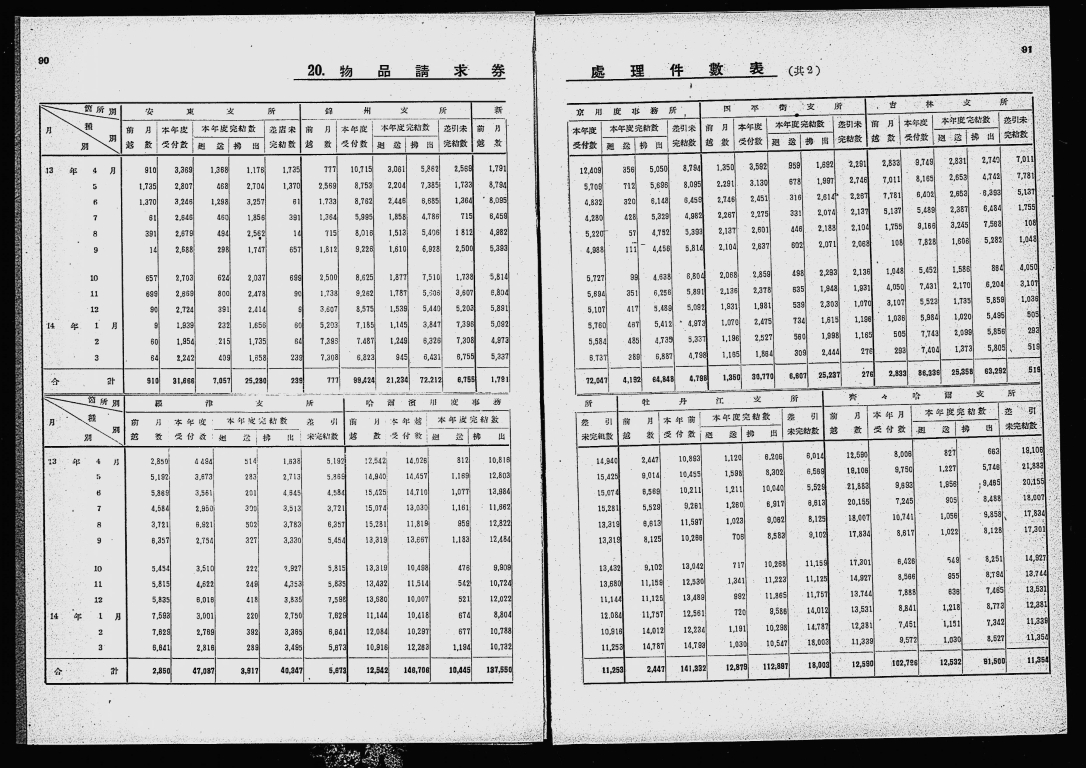 90
20. 物品請求券
箇所別
種別
月
安東支所
錦州支所
新
前月越数 本年度受付数 本年度完結数 廻送 拂出 差引未完結数 前月越数 本年度受付数 本年度完結数 廻送 拂出 差引未完結数 前月越数
13年4月 910 3,369 1,368 1,176 1,735 777 10,715 3,061 5,862 2,569 1,791
5 1,735 2,807 468 2,704 1,370 2,569 8,753 2,204 7,385 1,733 8,794
6 1,370 3,246 1,298 3,257 61 1,733 8,762 2,446 6,685 1,364 8,095
7 61 2,646 460 1,856 391 1,364 5,995 1,858 4,786 715 6,459
8 391 2,679 494 2,562 14 715 8,016 1,513 5,406 1,812 4,982
9 14 2,688 298 1,747 657 1,812 9,226 1,610 6,928 2,500 5,393
10 657 2,703 624 2,037 699 2,500 8,625 1,877 7,510 1,738 5,814
11 699 2,669 800 2,478 90 1,738 9,262 1,787 5,606 3,607 6,804
12 90 2,724 391 2,414 9 3,607 8,575 1,539 5,440 5,203 5,891
14年1月 9 1,939 232 1,656 60 5,203 7,185 1,145 3,847 7,396 5,092
2 60 1,954 215 1,735 64 7,395 7,487 1,249 6,326 7,308 4,973
3 64 2,242 409 1,658 239 7,308 6,823 945 6,431 6,755 5,337
合計 910 31,666 7,057 25,280 239 777 99,424 21,234 72,212 6,755 1,791
箇所別
種別
月
羅津支所
哈爾濱用度事務
前月越数 本年度受付数 本年度完結数 廻送 拂出 差引未完結数 前月越数 本年越受付数 本年度完結数 廻送 拂出
13年4月 2,850 4,494 514 1,638 5,192 12,542 14,026 812 10,816
5 5,192 3,673 283 2,713 5,869 14,940 14,457 1,169 12,803
6 5,869 3,561 201 4,645 4,584 15,425 14,710 1,077 13,984
7 4,584 2,950 300 3,513 3,721 15,074 13,030 1,161 11,662
8 3,721 6,921 502 3,783 6,357 15,281 11,819 959 12,822
9 6,357 2,754 327 3,330 5,454 13,319 13,667 1,183 12,484
10 5,454 3,510 222 2,927 5,815 13,319 10,498 476 9,909
11 5,815 4,622 249 4,353 5,835 13,432 11,514 542 10,724
12 5,835 6,016 418 3,835 7,598 13,980 10,007 521 12,022
14年1月 7,593 3,001 220 2,750 7,629 11,144 10,418 674 8,804
2 7,629 2,769 392 3,365 6,641 12,084 10,297 677 10,788
3 6,641 2,816 289 3,495 5,673 10,916 12,263 1,194 10,732
合計 2,850 47,087 3,917 40,347 5,673 12,542 146,706 10,445 137,550
91
處理件數表 (共2)
京用度事務所
四平街支所
吉林支所
本年度受付数 本年度完結数 廻送 拂出 差引未完結数 前月越数 本年度受付数 本年度完結数 廻送 拂出 差引未完結数 前月越数 本年度受付数 本年度完結数 廻送 拂出 差引未完結数
12,409 356 5,050 8,794 1,350 3,592 959 1,692 2,291 2,833 9,749 2,831 2,740 7,011
5,709 712 5,696 8,095 2,291 3,130 678 1,997 2,746 7,011 8,165 2,653 4,742 7,781
4,832 320 6,148 6,459 2,746 2,451 316 2,614 2,267 7,781 6,402 2,653 6,393 5,137
4,280 428 5,329 4,982 2,267 2,275 331 2,074 2,137 5,137 5,489 2,387 6,484 1,755
5,220 57 4,752 5,393 2,137 2,601 446 2,188 2,104 1,755 9,166 3,245 7,568 108
4,988 111 4,456 5,814 2,104 2,637 602 2,071 2,068 108 7,828 1,606 5,282 1,048
5,727 99 4,638 6,804 2,068 2,859 498 2,293 2,136 1,048 5,452 1,586 864 4,050
5,694 351 6,256 5,891 2,136 2,378 635 1,948 1,931 4,050 7,431 2,170 6,204 3,107
5,107 417 5,489 5,092 1,931 1,981 539 2,303 1,070 3,107 5,523 1,735 5,859 1,036
5,760 467 5,412 4,973 1,070 2,475 734 1,615 1,196 1,036 5,984 1,020 5,495 505
5,584 485 4,735 5,337 1,196 2,527 560 1,998 1,165 505 7,743 2,099 5,856 293
6,737 389 6,887 4,798 1,165 1,864 309 2,444 276 293 7,404 1,373 5,805 519
72,047 4,192 64,848 4,798 1,350 30,770 6,607 25,237 276 2,833 86,336 25,358 63,292 519
所
牡丹江支所
齊々哈爾支所
差引未完結数 前月越数 本年前受付数 本年度完結数 廻送 拂出 差引未完結数 前月越数 本年月受付数 本年度完結数 廻送 拂出 差引未完結数
14,940 2,447 10,893 1,120 6,206 6,014 12,590 8,006 827 663 19,106
15,425 9,014 10,455 1,598 8,302 6,569 19,106 9,750 1,227 5,746 21,883
15,074 6,569 10,211 1,211 10,040 5,529 21,883 9,693 1,956 9,465 20,155
15,281 5,529 9,261 1,260 6,917 6,613 20,155 7,245 905 8,488 18,007
13,319 6,613 11,597 1,023 9,062 8,125 18,007 10,741 1,056 9,858 17,834
13,319 8,125 10,266 706 8,583 9,102 17,834 8,617 1,022 8,128 17,301
13,432 9,102 13,042 717 10,268 11,159 17,301 6,426 549 8,251 14,927
13,980 11,159 12,530 1,341 11,223 11,125 14,927 8,566 955 8,794 13,744
11,144 11,125 13,489 992 11,865 11,757 13,744 7,888 636 7,465 13,531
12,084 11,757 12,561 720 9,586 14,012 13,531 8,841 1,218 8,773 12,381
10,916 14,012 12,234 1,191 10,298 14,787 12,381 7,451 1,151 7,342 11,339
11,253 14,787 14,793 1,030 10,547 18,003 11,339 9,572 1,030 8,527 11,354
11,253 2,447 141,332 12,879 112,897 18,003 12,590 102,796 12,532 91,500 11,354